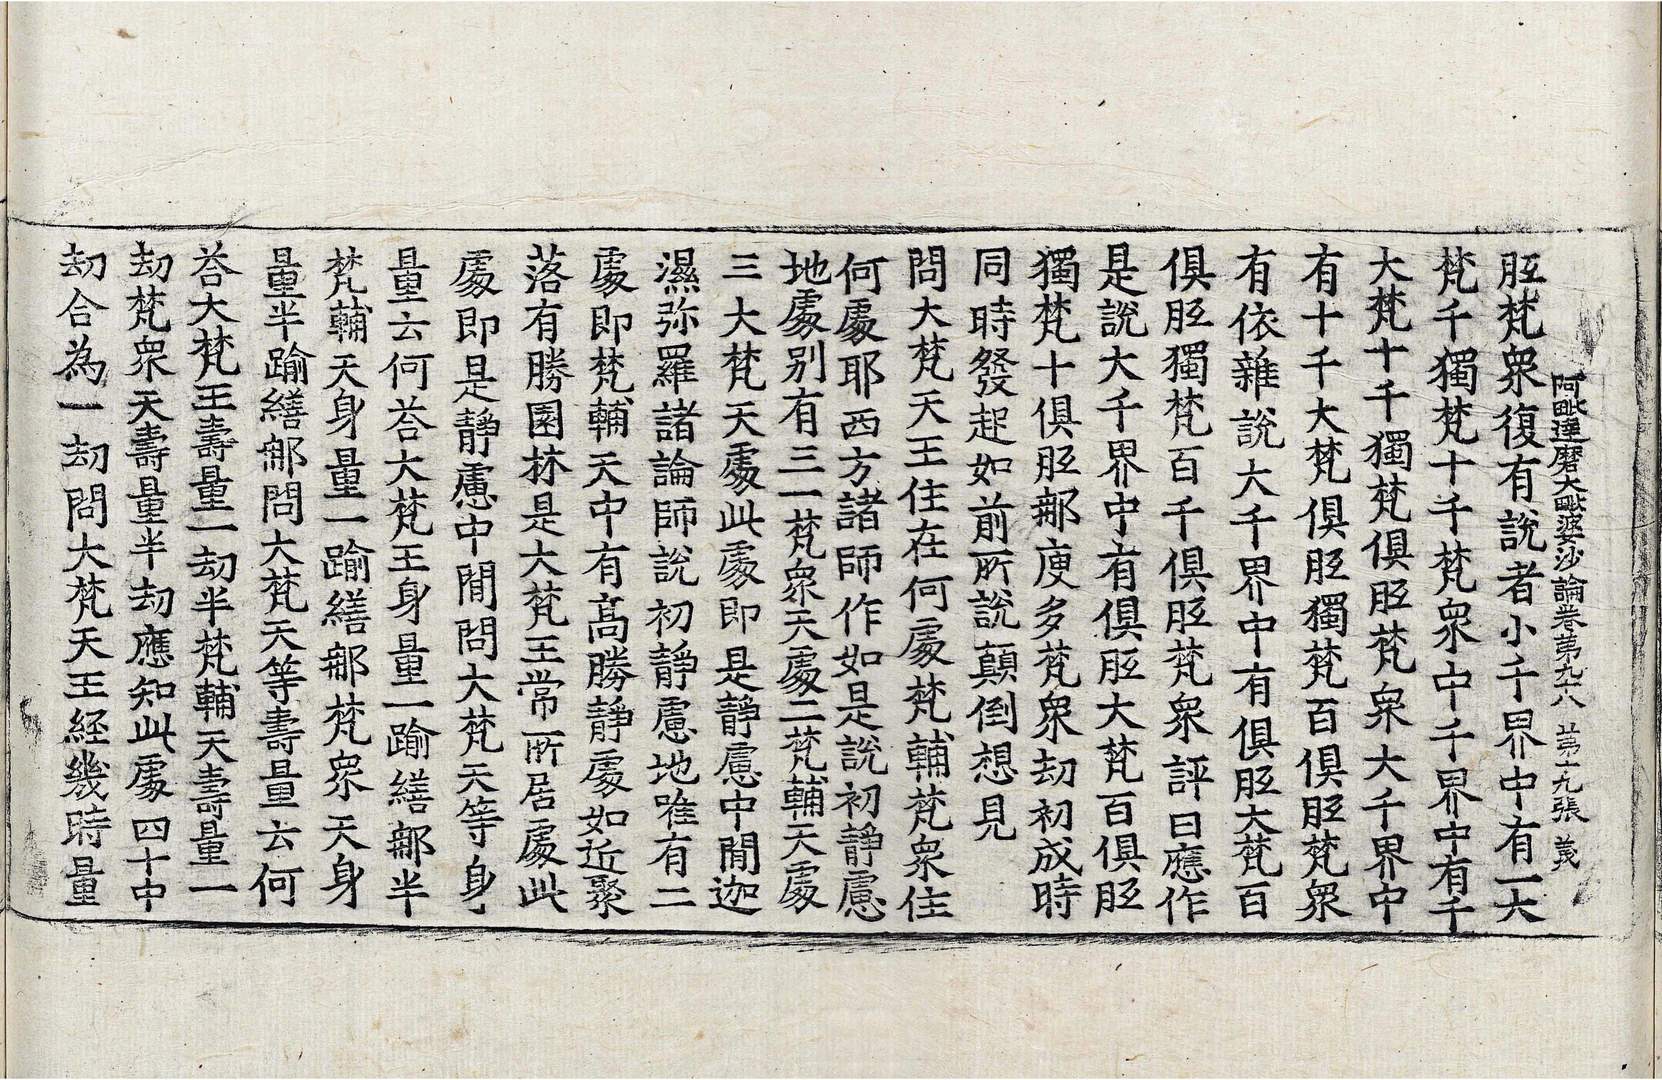 阿毗達磨大毗婆沙論卷第九十八 第十九張 義
胝梵衆復有說者小千界中有一大
梵千獨梵十千梵衆中千界中有千
大梵十千獨梵俱胝梵衆大千界中
有十千大梵俱胝獨梵百俱胝梵衆
有依雜說大千界中有俱胝大梵百
俱胝獨梵百千俱胝梵衆評曰應作
是說大千界中有俱胝大梵百俱胝
獨梵十俱胝那庾多梵衆劫初成時
同時發起如前所說顛倒想見
問大梵天王住在何處梵輔梵衆住
何處耶西方諸師作如是說初靜慮
地處別有三一梵衆天處二梵輔天處
三大梵天處此處即是靜慮中間迦
濕弥羅諸論師說初靜慮地唯有二
處即梵輔天中有高勝靜處如近聚
落有勝園林是大梵王常所居處此
處即是靜慮中間問大梵天等身
量云何荅大梵王身量一踰繕那半
梵輔天身量一踰繕那梵衆天身
量半踰繕那問大梵天等壽量云何
荅大梵王壽量一劫半梵輔天壽量一
劫梵衆天壽量半劫應知此處四十中
劫合為一劫問大梵天王經幾時量